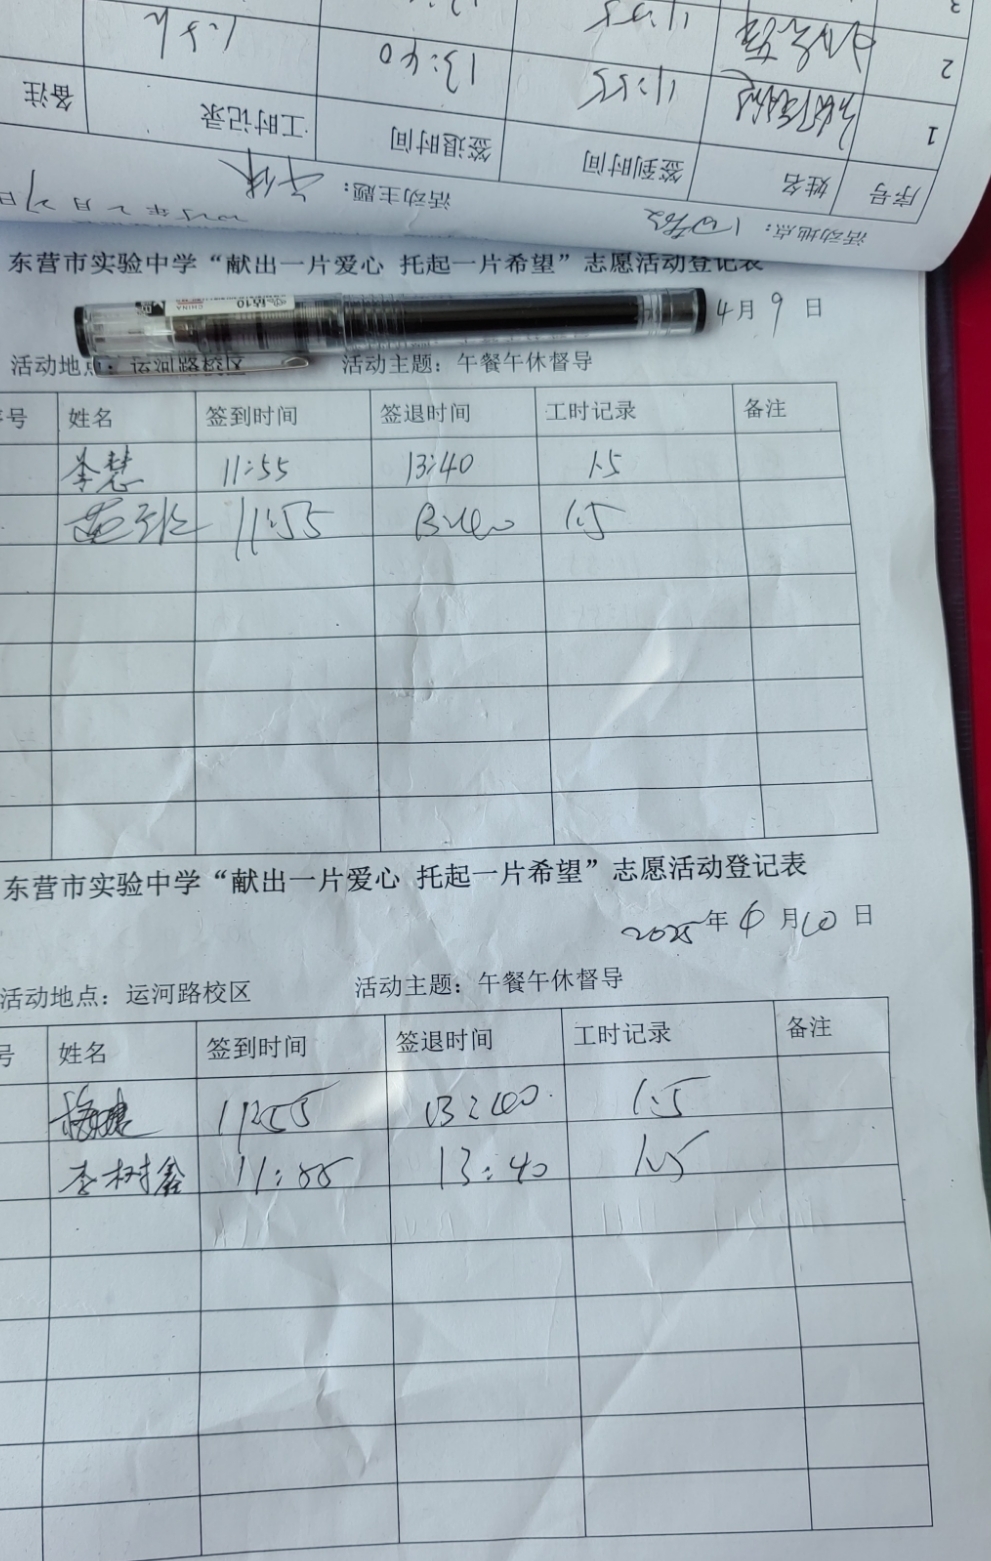 活动地点：
2025年2月 日
活动主题：午休
序号 姓名 签到时间 签退时间 工时记录 备注
1 11:55 13:40 1.5h
2 11:55
3
东营市实验中学“献出一片爱心 托起一片希望”志愿活动登记表
4月9日
活动地点：运河路校区 活动主题：午餐午休督导
号 姓名 签到时间 签退时间 工时记录 备注
李慧 11:55 13:40 1.5
11:55 13:40 1.5
东营市实验中学“献出一片爱心 托起一片希望”志愿活动登记表
2025年4月10日
活动地点：运河路校区 活动主题：午餐午休督导
号 姓名 签到时间 签退时间 工时记录 备注
11:55 13:40 1.5
李树鑫 11:55 13:40 1.5